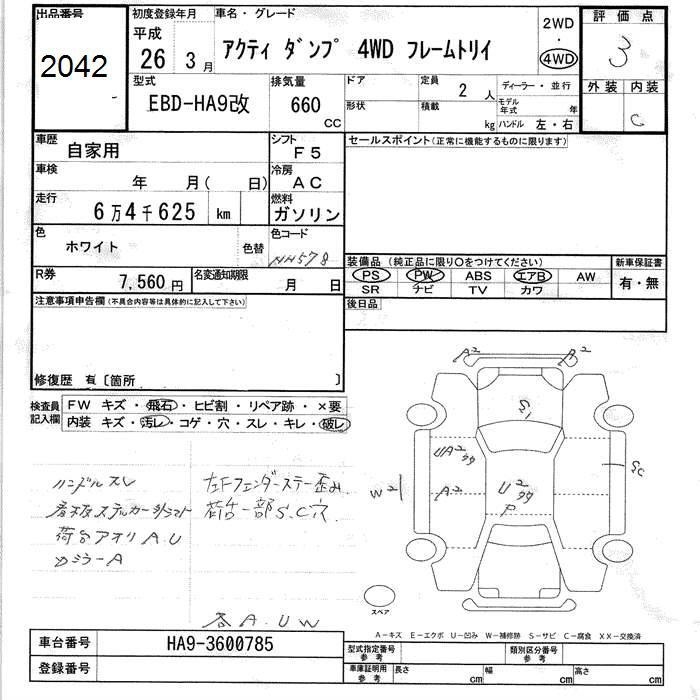 出品番号 初度登録年月 車名・グレード 2WD 評価点
平成 ・
2042 26 3月 アクティ ダンプ 4WD フレームトリイ 4WD 3
型式 排気量 ドア 定員 2人 ディーラー・並行 外装 内装
EBD-HA9改 660 cc 形状 積載 kg モデル年式 年 C
ハンドル 左・右
車歴 自家用 シフト F5 セールスポイント(正常に機能するものに限ります)
車検 年 月( 日) 冷房 AC
走行 6万4千625 km 燃料 ガソリン
色 ホワイト 色替 色コード NH578
装備品 (純正品に限り○をつけてください) 新車保証書
R券 7,560円 名変通知期限 月 日 PS PW ABS エアB AW 有・無
SR ナビ TV カワ
注意事項申告欄(不具合内容等は具体的に記入して下さい) 後日品
修復歴 有 〔箇所 〕
検査員記入欄 FW キズ・飛石・ヒビ割・リペア跡・×要
内装 キズ・汚レ・コゲ・穴・スレ・キレ・破レ
A2 A2
S1
UA2 SC
W2 A2 U2
P
ハンドルスレ 左Fフェンダーステー歪み
荷台一部S.C穴
荷台アオリA.U
カジラーA
各A.U W
スペア
A-キズ E-エクボ U-凹み W-補修跡 S-サビ C-腐食 XX-交換済
車台番号 HA9-3600785 型式指定番号 参考 類別区分番号 参考
登録番号 車庫証明用 参考 長さ cm 幅 cm 高さ cm